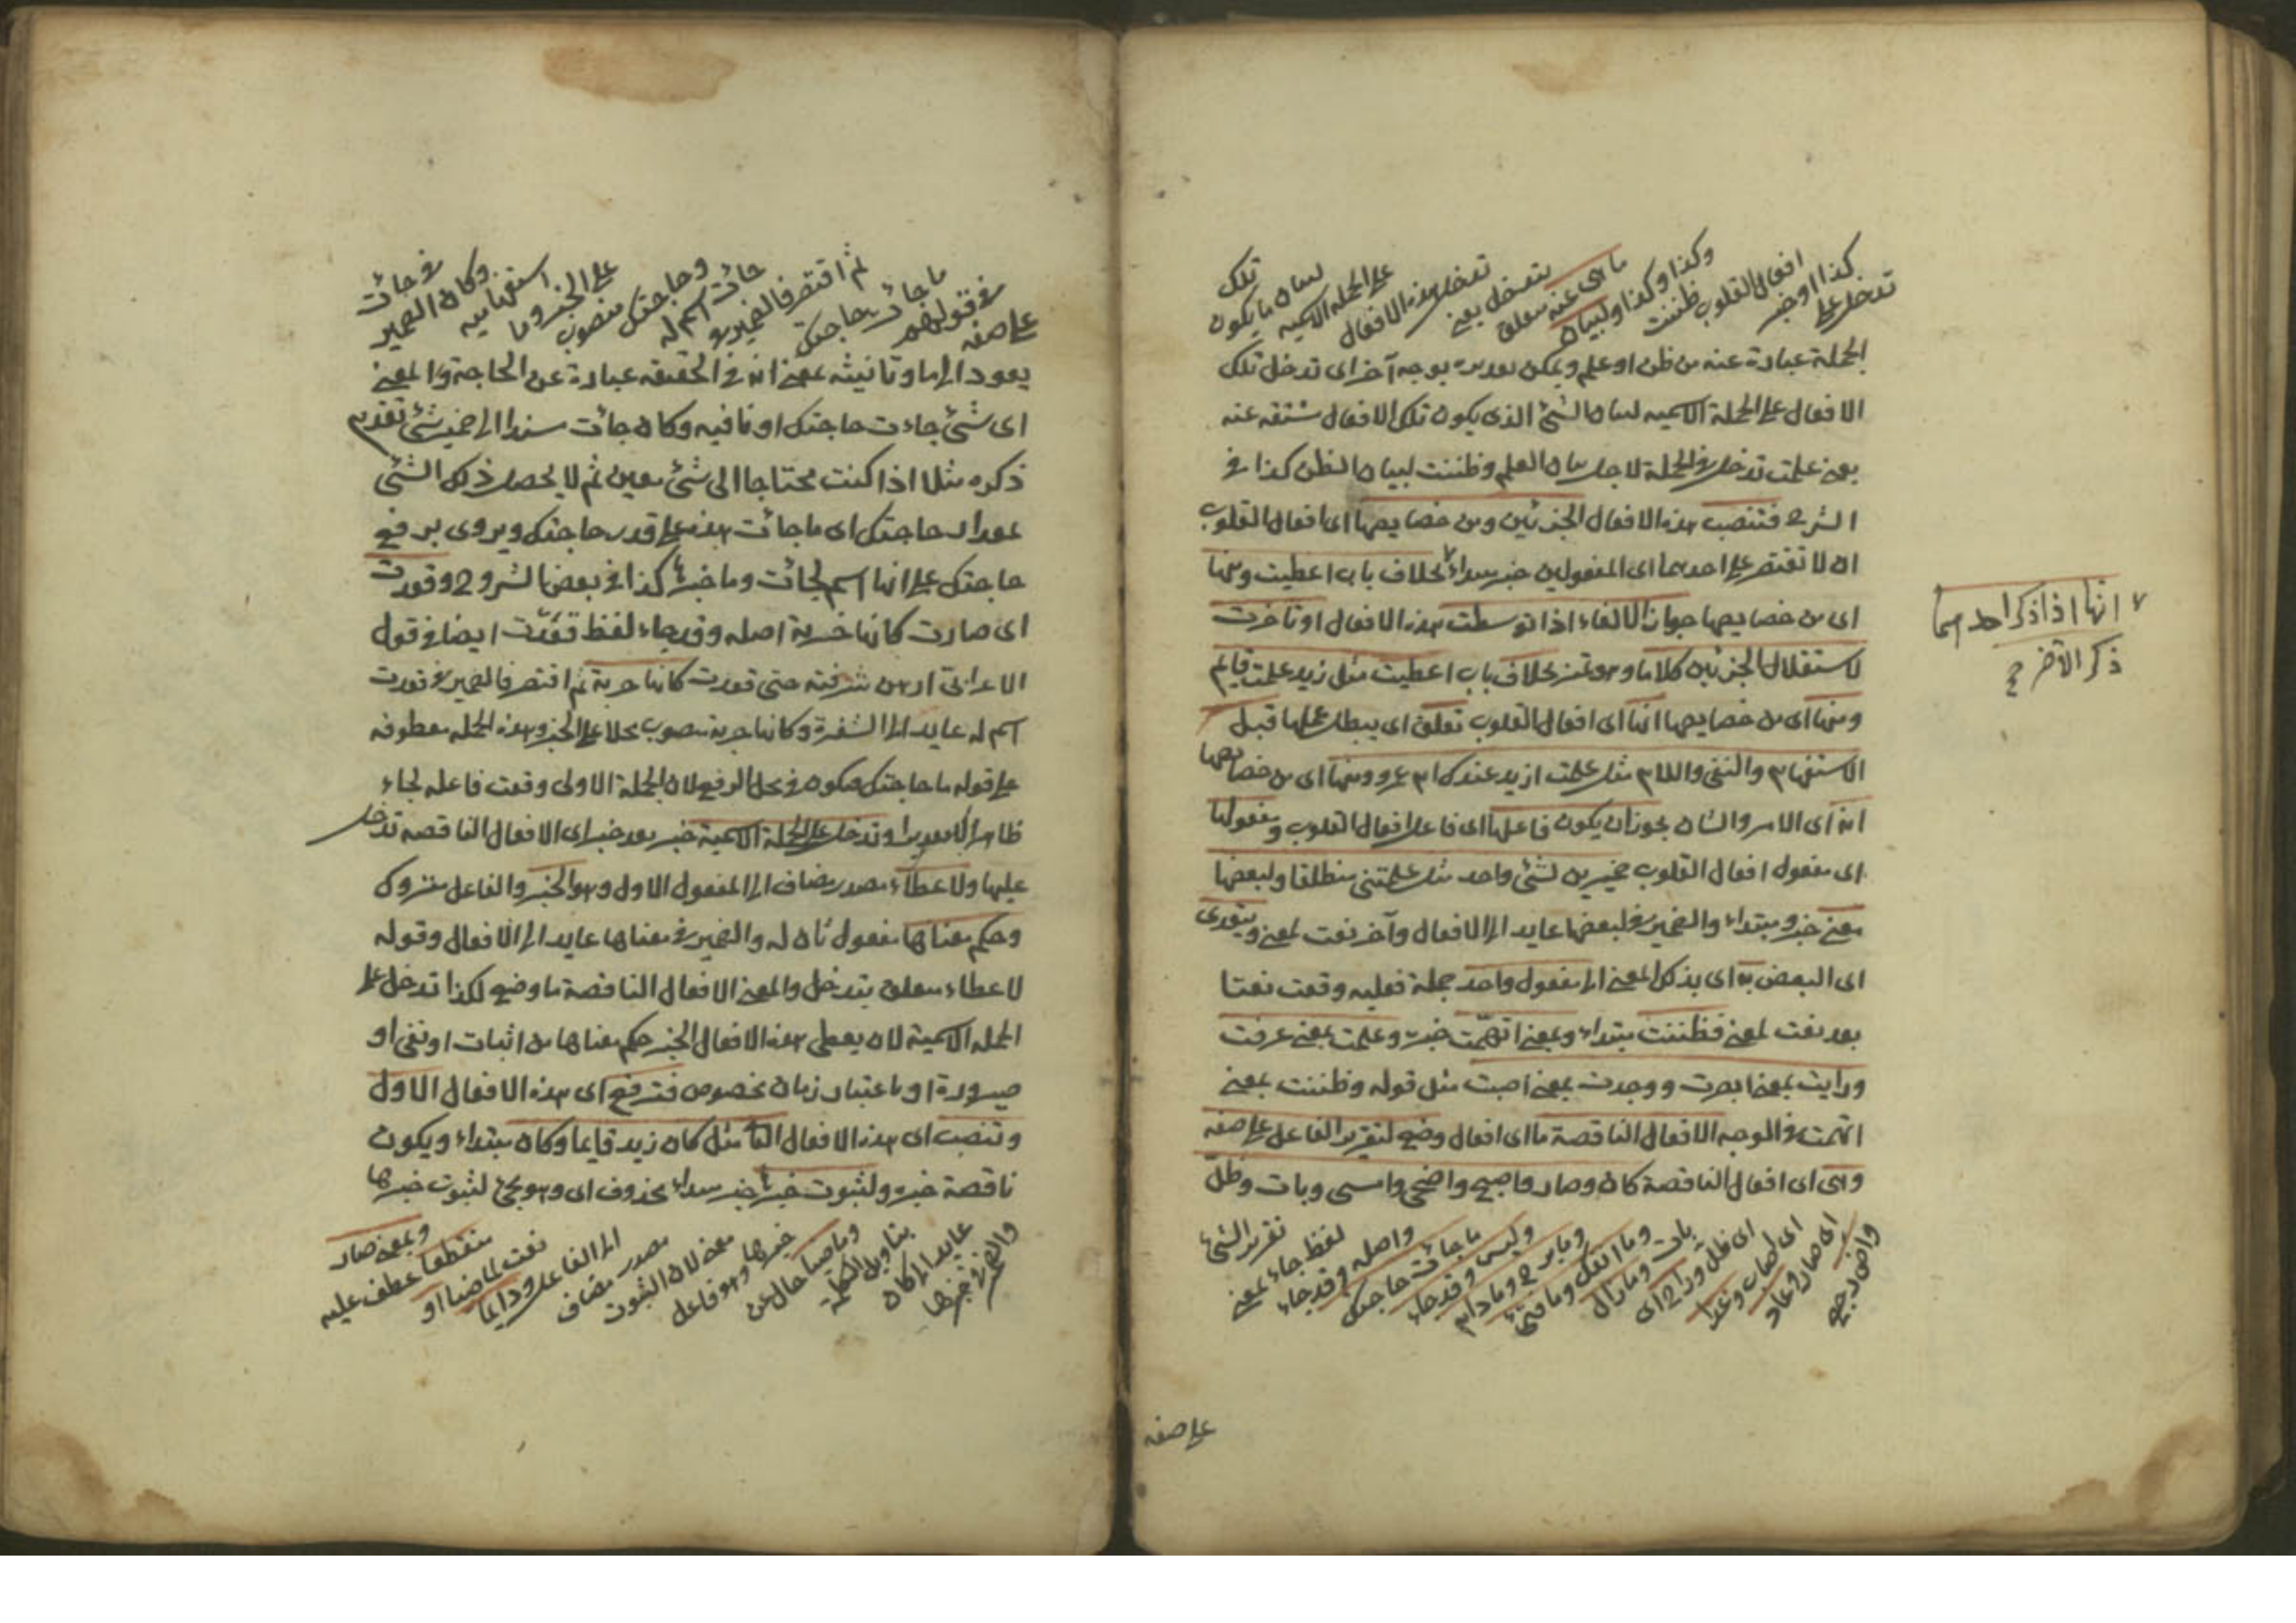 كذا او خبر
تدخل على
افعال القلوب ظننت
وكذا وكذا ولبيان
ما هى عنه متعلق
بتدخل يعنى
تدخل هذه الافعال
على الجملة الاسمية
لبيان ما يكون
تلك
الجملة عبارة عنه من ظن او علم ويمكن بوجه آخر اى تدخل تلك
الافعال على الجملة الاسميه لبيان الشئ الذى يكون تلك الافعال عنه
يعنى علمت تدخل فى الجملة لاجل بيان العلم وظننت لبيان الظن كذا فى
الشرح فتنصب هذه الافعال الجزئين ومن خصايصها اى افعال القلوب
ان لا تقتصر على احدهما اى المفعولين خبر مبتداء بخلاف باب اعطيت ومنها
انها اذا ذكر احدهما
ذكر الآخر
اى من خصايصها جواز الالغاء اذا توسطت هذه الافعال او تاخرت
لاستقلال الجزئين كلاما بخلاف باب اعطيت مثل زيد علمت قايم
ومنها اى من خصايصها انها اى افعال القلوب تعلق اى يبطل عملها قبل
الاستفهام والنفى واللام مثل علمت ازيد عندك ام عمرو ومنها اى من خصايصها
انه اى الامر والشان يجوز ان يكون فاعلها اى فاعل افعال القلوب ومفعولها
اى مفعول افعال القلوب ضميرين لشئ واحد مثل علمتنى منطلقا ولبعضها
معنى خبر ومبتداء والضمير فى لبعضها عايد الى الافعال وآخر نعت لمعنى ويتعدى
اى البعض به اى بذلك المعنى الى مفعول واحد جملة فعليه وقعت نعتا
بعد نعت لمعنى فظننت مبتداء وبمعنى اتهمت خبره وعلمت بمعنى عرفت
ورايت بمعنى ابصرت ووجدت بمعنى اصبت مثل قوله وظننت بمعنى
اتهمت فى الوجه الافعال الناقصة ما اى افعال وضع لتقرير الفاعل على صفه
وهى اى افعال الناقصة كان وصار واصبح واضحى وامسى وبات وظل
واض رجع
اى صار وعاد
اى صار وغدا
اى ظل وراح اى
بات وما زال
وما انفك وما فتئ
وما برح وما دام
وليس وقد جاء
ما جائت حاجتك
واصله وقد جاء
لفظ جاء بمعنى
تقرير الشئ
على صفه
على صفه
فى قولهم
ما جائت حاجتك
ثم اقتصر فالضمير فى
جائت اسم له
وحاجتك منصوب
على الخبر وما
استفهاميه
وكان الضمير
فى جائت
يعود الى ما وتانيثه بمعنى انه فى الحقيقه عبارة عن الحاجة والمعنى
اى شئ جاءت حاجتك او نافيه وكان جائت مسندا الى ضمير شئ تقدم
ذكره مثلا اذا كنت محتاجا الى شئ معين ثم لا يحصل ذلك الشئ
حاجتك اى ما جائت هذه على قدر حاجتك ويروى برفع
حاجتك على انها اسم لجائت وما خبرها كذا فى بعض الشروح وقعدت
اى صارت كانها حربة اصله وقد جاء لفظ قعدت ايضا فى قول
الاعرابى ارهف شفرته حتى قعدت كانها حربة ثم اقتصر فالضمير فى قعدت
اسم له عايد الى الشفرة وكانها حربة منصوب محلا على الخبر وهذه الجمله معطوفه
على قوله ما جاءت حاجتك فيكون فى محل الرفع لان الجملة الاولى وقعت فاعله لجاء
وتدخل على الجملة الاسمية خبر بعد خبر اى الافعال الناقصه تدخل
عليها ولاعطاء مصدر مضاف الى المفعول الاول وهو الخبر والفاعل متروك
وحكم معناها مفعول ثان له والضمير فى معناها عايد الى الافعال وقوله
لاعطاء متعلق بتدخل والمعنى الافعال الناقصة ما وضع لكذا تدخل على
الجمله الاسمية لان يعطى هذه الافعال الخبر حكم معناها من اثبات او نفى او
صيرورة او باعتبار زمان مخصوص فترفع اى هذه الافعال الاول
وتنصب اى هذه الافعال الثانى مثل كان زيد قايما وكان مبتداء ويكون
ناقصة خبره ولثبوت خبرها خبر مبتداء محذوف اى وهو يجئ لثبوت خبرها
والضمير فى خبرها
عايد الى كان
بتاويل الكلمة
وماضيا حال عن
خبرها وهو فاعل
معنى لان الثبوت
مصدر مضاف
الى الفاعل ودايما
نعت لماضيا او
منقطعا عطف عليه
وبمعنى صار